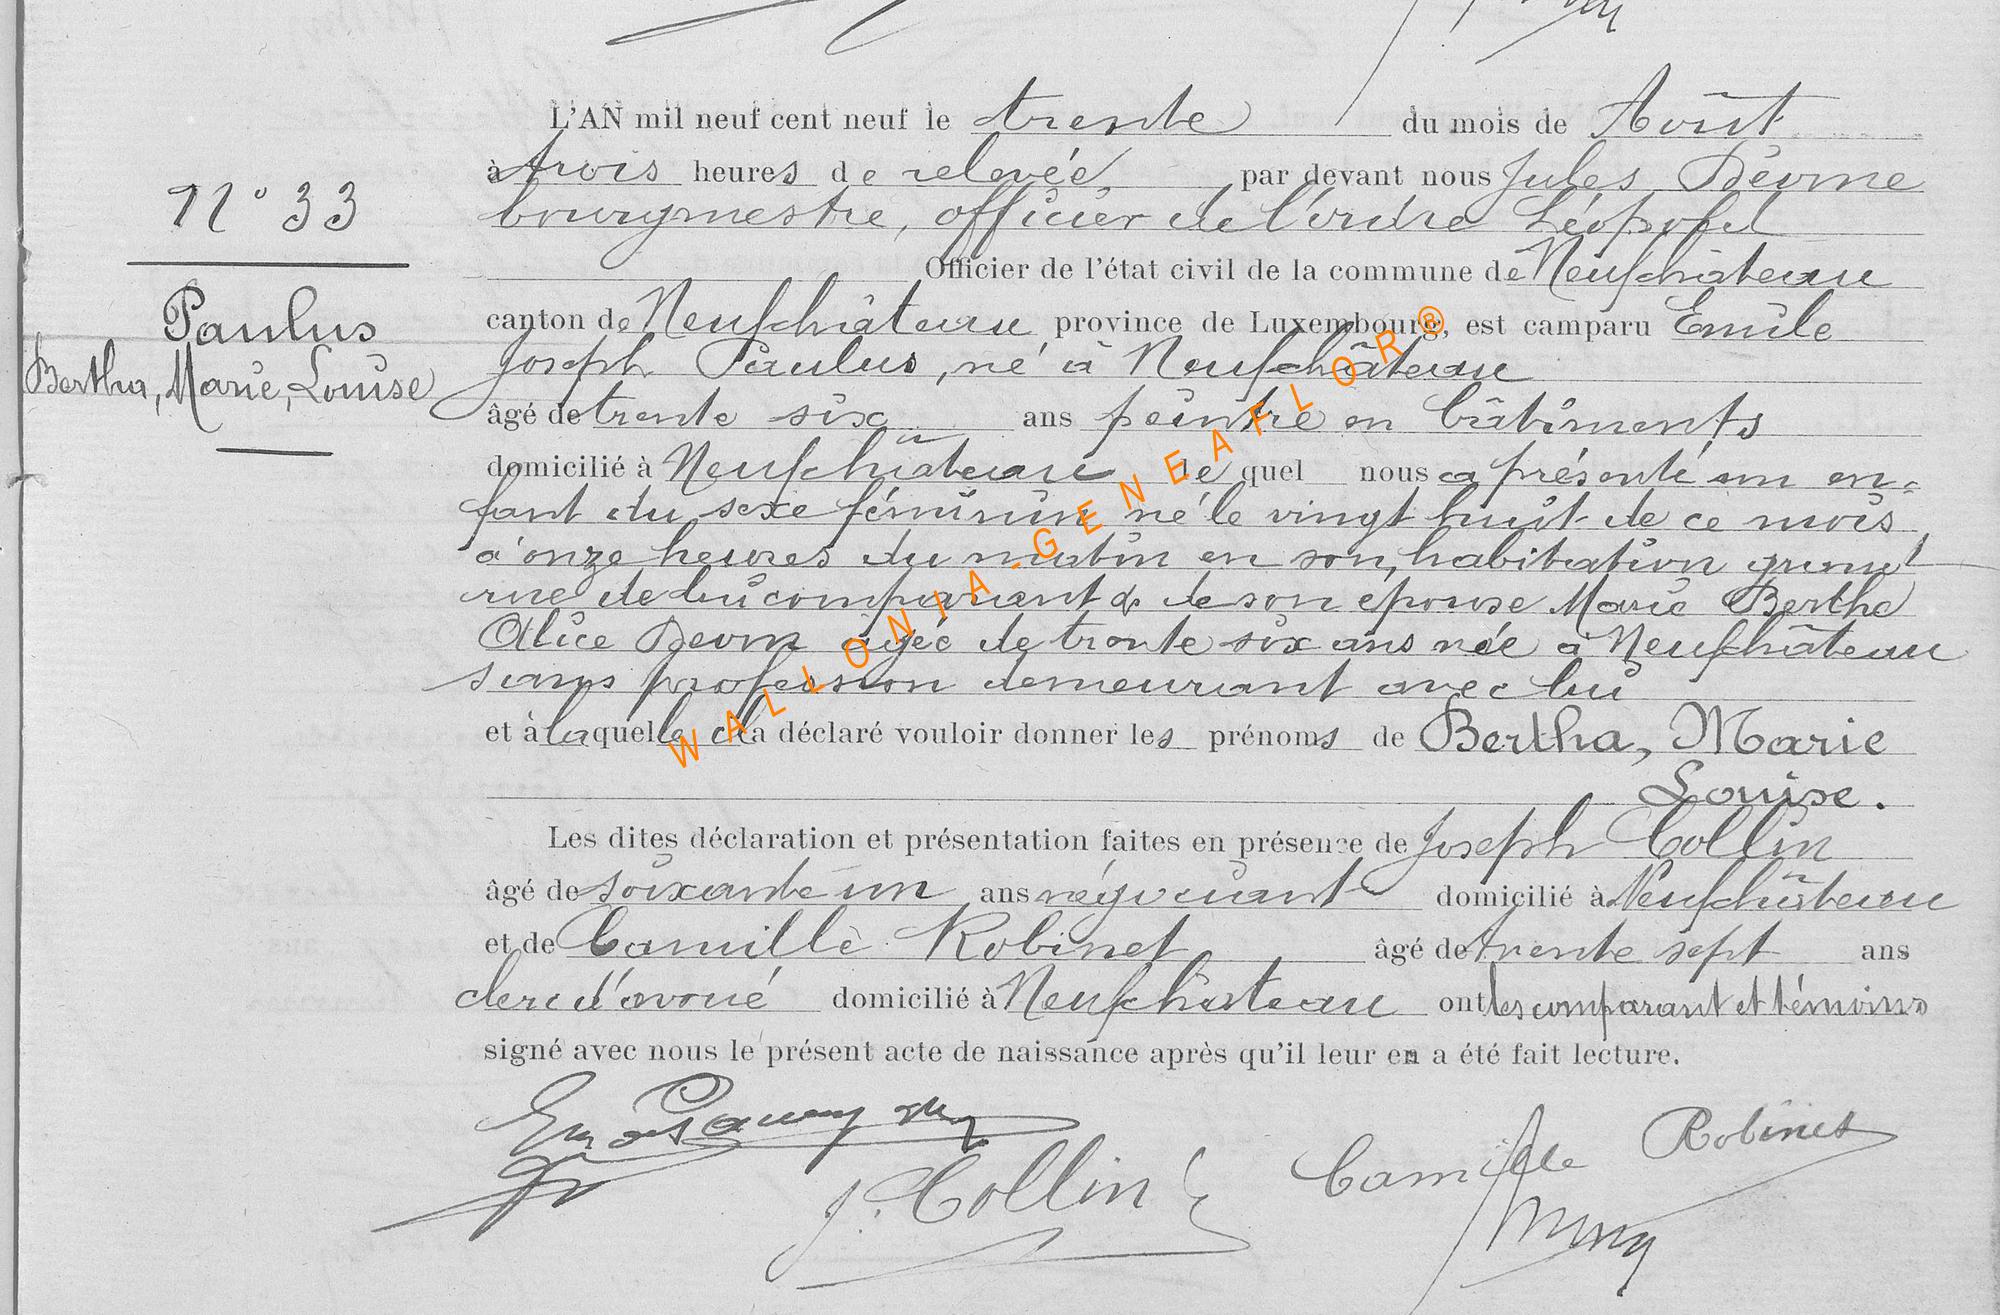 L'AN mil neuf cent neuf le trente du mois de Août
à trois heures de relevée, par devant nous Jules
N° 33
bourgmestre, officier de l'ordre Léopold
Officier de l'état civil de la commune de Neufchâteau
Paulus
Bertha, Marie, Louise
canton de Neufchâteau province de Luxembourg, est camparu Emile
Joseph Paulus, né à Neufchâteau
âgé de trente six ans peintre en bâtiments
domicilié à Neufchâteau lequel nous a présenté un en-
fant du sexe féminin né le vingt huit de ce mois
à onze heures du matin en son habitation
rue de lui comparant & de son épouse Marie Berthe
Alice âgée de trente six ans née à Neufchâteau
sans profession demeurant avec lui
et à laquelle il a déclaré vouloir donner les prénoms de Bertha, Marie
Louise.
Les dites déclaration et présentation faites en présence de Joseph Collin
âgé de soixante un ans négociant domicilié à Neufchâteau
et de Camille Robinet âgé de trente sept ans
clerc d'avoué domicilié à Neufchâteau ont les comparant et témoins
signé avec nous le présent acte de naissance après qu'il leur en a été fait lecture.
J. Collin
Camille Robinet
WALLONIA-GENEAFLOR®